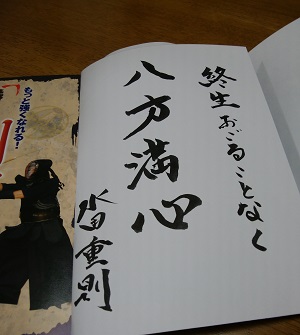 終生おごることなく
八方満心
沓田重則
もっと強くなれる!